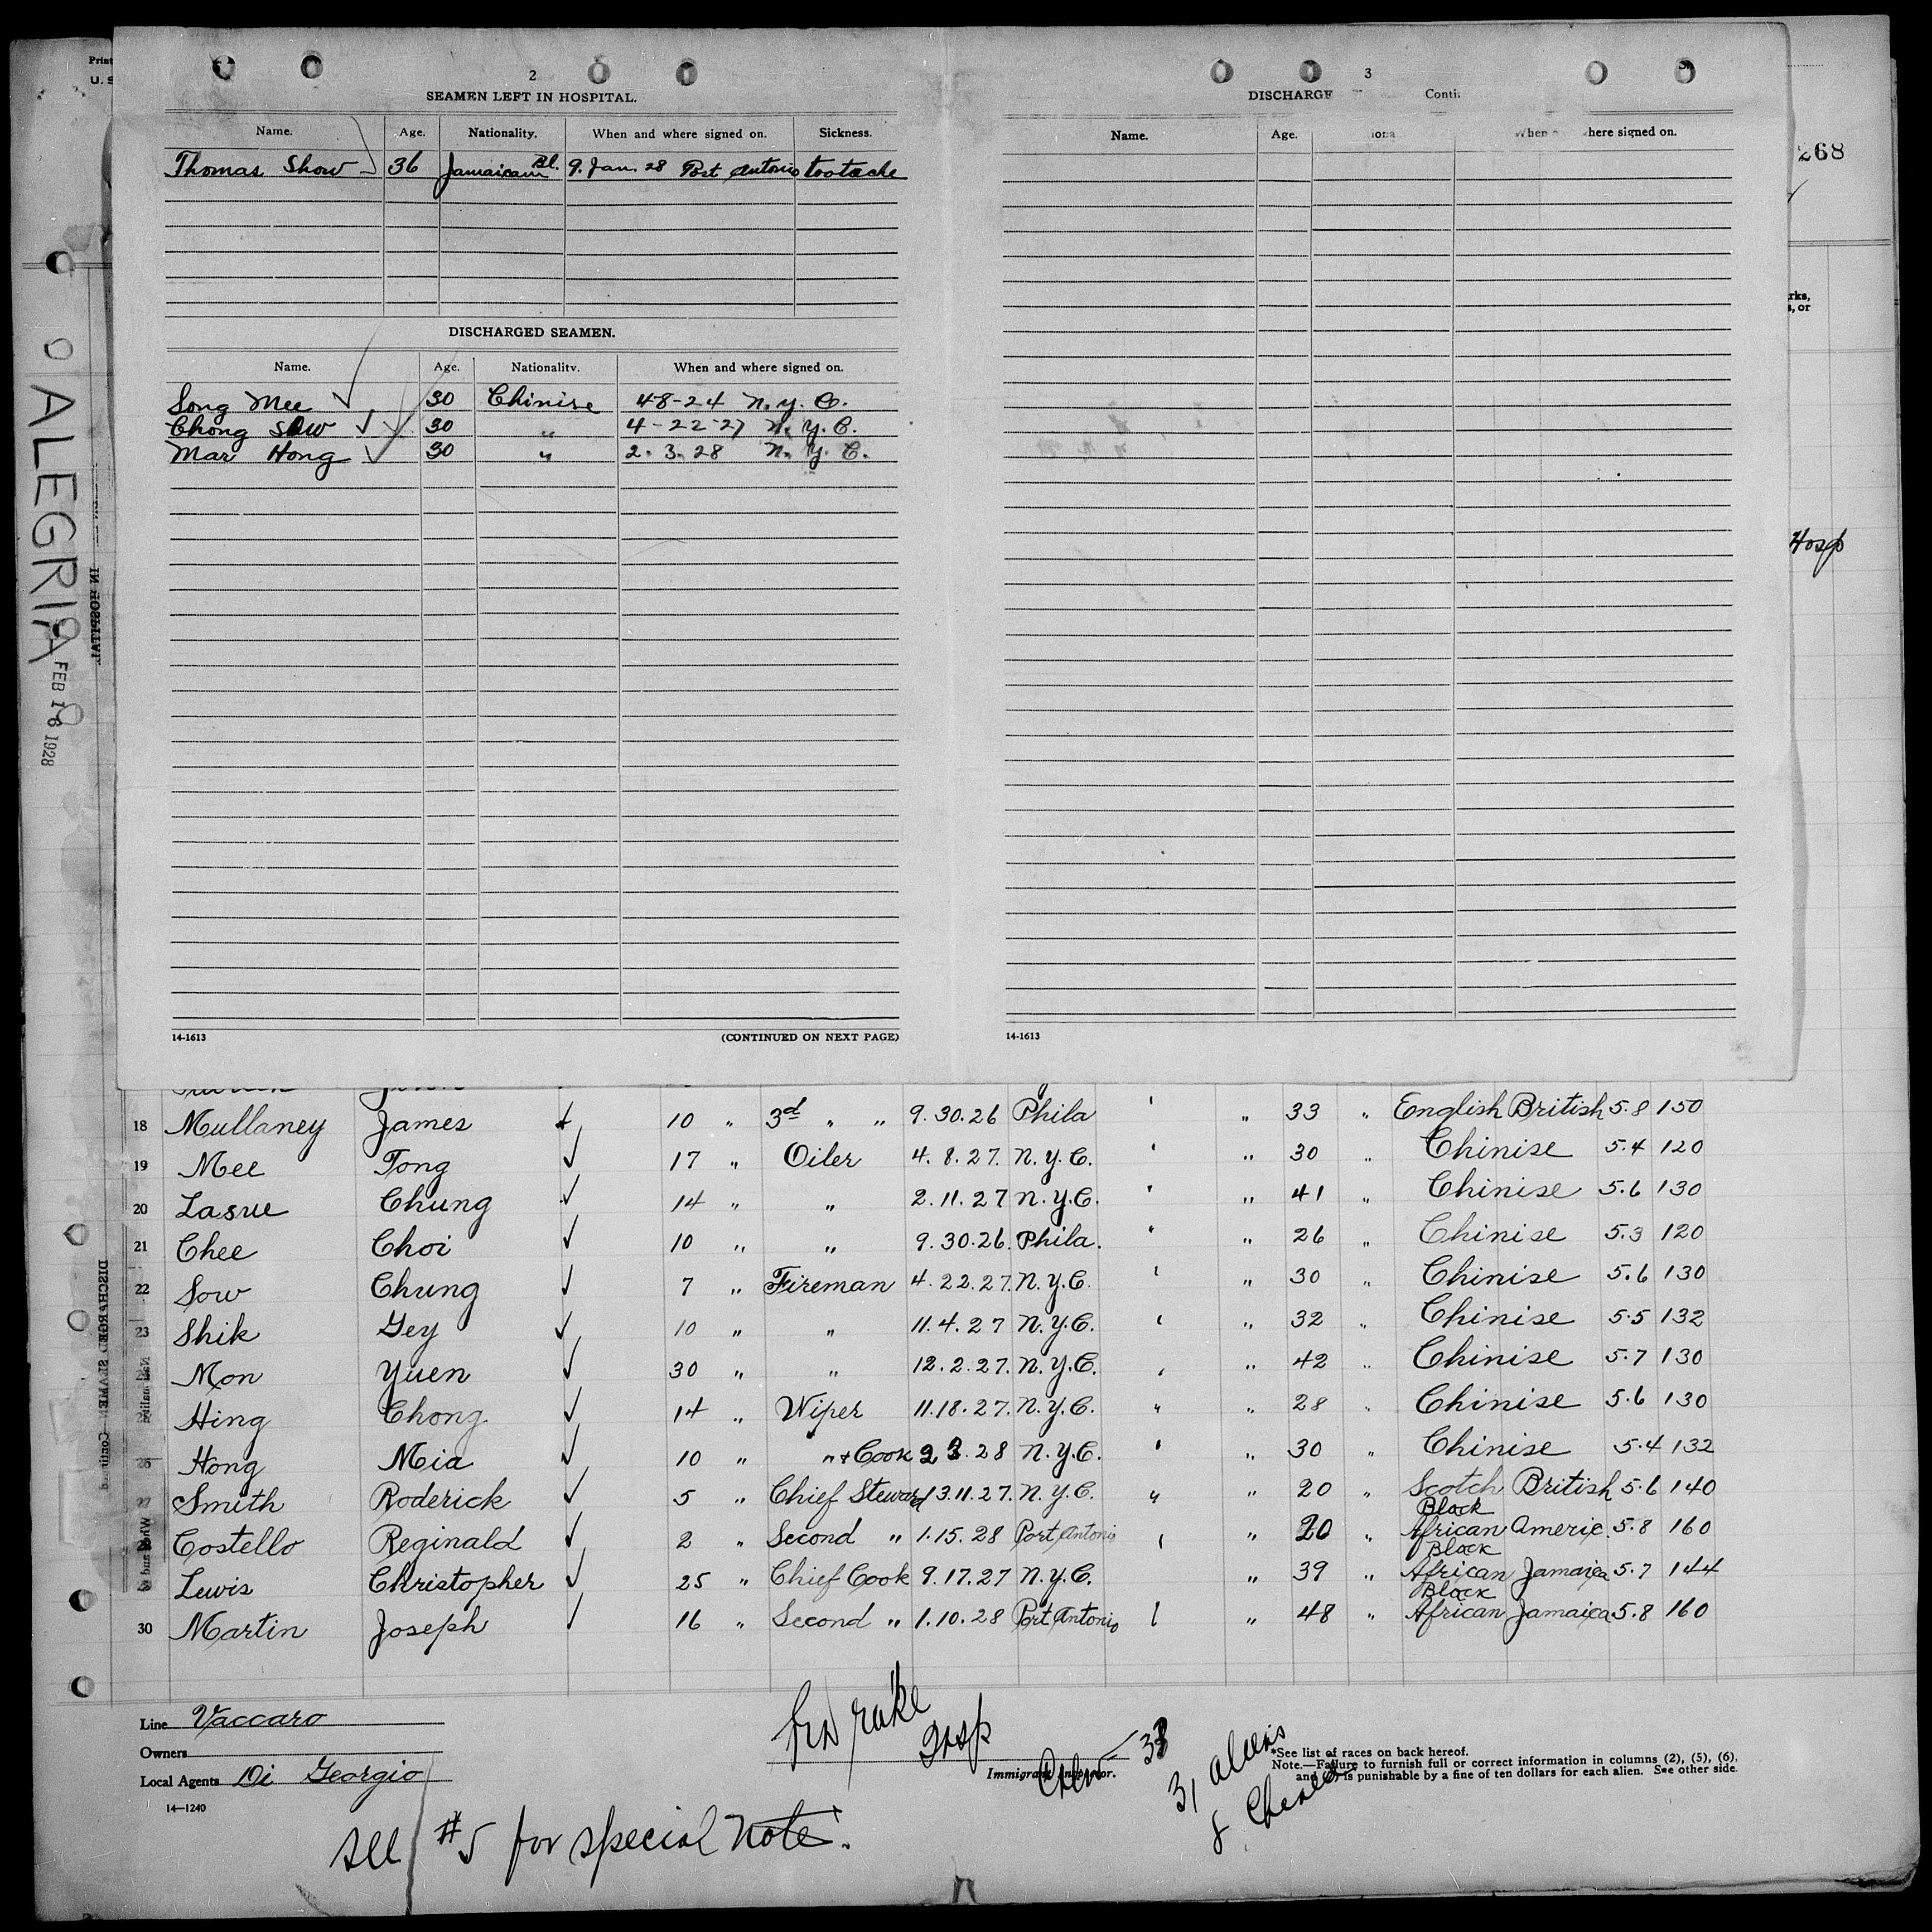 2
SEAMEN LEFT IN HOSPITAL.
Name. Age. Nationality. When and where signed on. Sickness.
Thomas Show 36 Jamaican Bl. 9. Jan. 28 Port Antonio tootache
DISCHARGED SEAMEN.
Name. Age. Nationality. When and where signed on.
Song Mee 30 Chinise 4-8-24 N.Y.C.
Chong Sow 30 " 4-22-27 N.Y.C.
Mar Hong 30 " 2.3.28 N.Y.C.
14-1613 (CONTINUED ON NEXT PAGE)
3
DISCHARGE Conti
Name. Age. When here signed on.
14-1613
268
rks,
s, or
Hosp
Print
U. S
ALEGRIA
FEB 16 1928
IN HOSPITAL
DISCHARGED SEAMEN—Contin
18 Mullaney James 10 " 3d " " 9.30.26 Phila " 33 " English British 5.8 150
19 Mee Tong 17 " Oiler 4.8.27. N.Y.C. " 30 " Chinise 5.4 120
20 Lasue Chung 14 " " 2.11.27 N.Y.C. " 41 " Chinise 5.6 130
21 Chee Choi 10 " " 9.30.26. Phila. " 26 " Chinise 5.3 120
22 Sow Chung 7 " Fireman 4.22.27. N.Y.C. " 30 " Chinise 5.6 130
23 Shik Gey 10 " " 11.4.27 N.Y.C. " 32 " Chinise 5.5 132
Mon Yuen 30 " " 12.2.27. N.Y.C. " 42 " Chinise 5.7 130
Hing Chong 14 " Wiper 11.18.27. N.Y.C. " " 28 " Chinise 5.6 130
26 Hong Mia 10 " " + Cook 2 3.28 N.Y.C. " 30 " Chinise 5.4 132
27 Smith Roderick 5 " Chief Steward 13.11.27. N.Y.C. " " 20 " Scotch British 5.6 140
Costello Reginald 2 " Second " 1.15.28 Port Antonio " 20 " Black African Americ. 5.8 160
Lewis Christopher 25 " Chief Cook 9.17.27 N.Y.C. " 39 " Black African Jamaica 5.7 144
30 Martin Joseph 16 " Second " 1.10.28 Port Antonio " 48 " Black African Jamaica 5.8 160
Line Vaccaro
Owners
Local Agents Di Georgio
14—1240
Insp
Immigrant Inspector.
31 aliens
8
*See list of races on back hereof.
Note.—Failure to furnish full or correct information in columns (2), (5), (6),
and is punishable by a fine of ten dollars for each alien. See other side.
See #5 for special note.